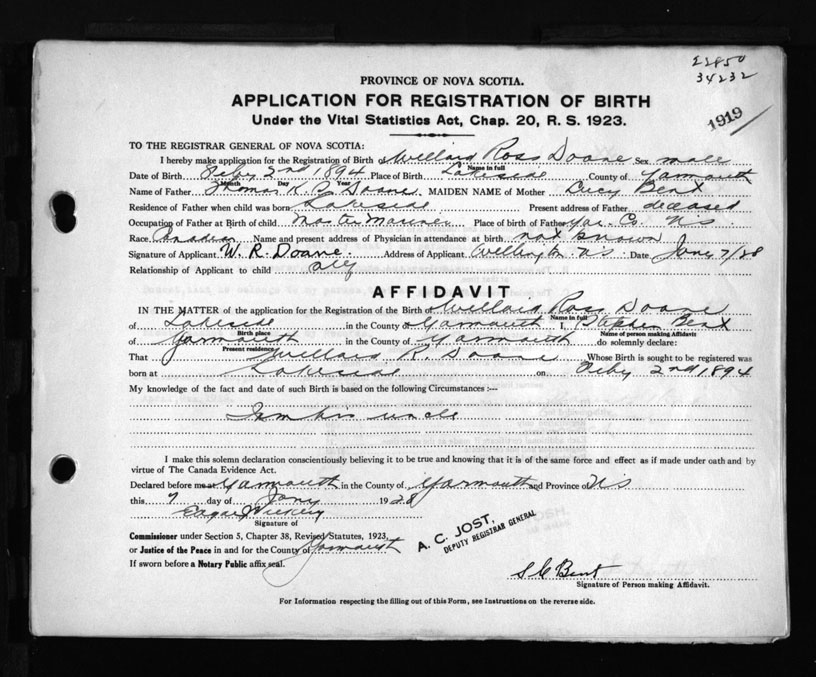 22850
34232
1919
PROVINCE OF NOVA SCOTIA.
APPLICATION FOR REGISTRATION OF BIRTH
Under the Vital Statistics Act, Chap. 20, R. S. 1923.
TO THE REGISTRAR GENERAL OF NOVA SCOTIA:
I hereby make application for the Registration of Birth of Willard Ross Doane Sex male
Name in full
Date of Birth Feby 2nd 1894 Place of Birth Lakeside County of Yarmouth
Month Day Year
Name of Father Doane MAIDEN NAME of Mother Lucy Bent
Residence of Father when child was born Lakeside Present address of Father deceased
Occupation of Father at Birth of child Master Mariner Place of birth of Father Yar. Co. NS
Race Canadian Name and present address of Physician in attendance at birth not known
Signature of Applicant W. R. Doane Address of Applicant Wellington NS Date Jany 7/28
Relationship of Applicant to child self
AFFIDAVIT
IN THE MATTER of the application for the Registration of the Birth of Willard Ross Doane
Name in full
of Lakeside in the County of Yarmouth I, Stephen Bent
Birth place Name of person making Affidavit
of Yarmouth in the County of Yarmouth do solemnly declare:
Present residence
That Willard R. Doane Whose Birth is sought to be registered was
born at Lakeside on Feby 2nd 1894
My knowledge of the fact and date of such Birth is based on the following Circumstances :—
I am his uncle
I make this solemn declaration conscientiously believing it to be true and knowing that it is of the same force and effect as if made under oath and by
virtue of The Canada Evidence Act.
Declared before me at Yarmouth in the County of Yarmouth and Province of NS
this 7 day of Jany 1928
Signature of
Commissioner under Section 5, Chapter 38, Revised Statutes, 1923,
or Justice of the Peace in and for the County of Yarmouth
A. C. JOST,
DEPUTY REGISTRAR GENERAL
If sworn before a Notary Public affix seal.
S C Bent
Signature of Person making Affidavit.
For Information respecting the filling out of this Form, see Instructions on the reverse side.